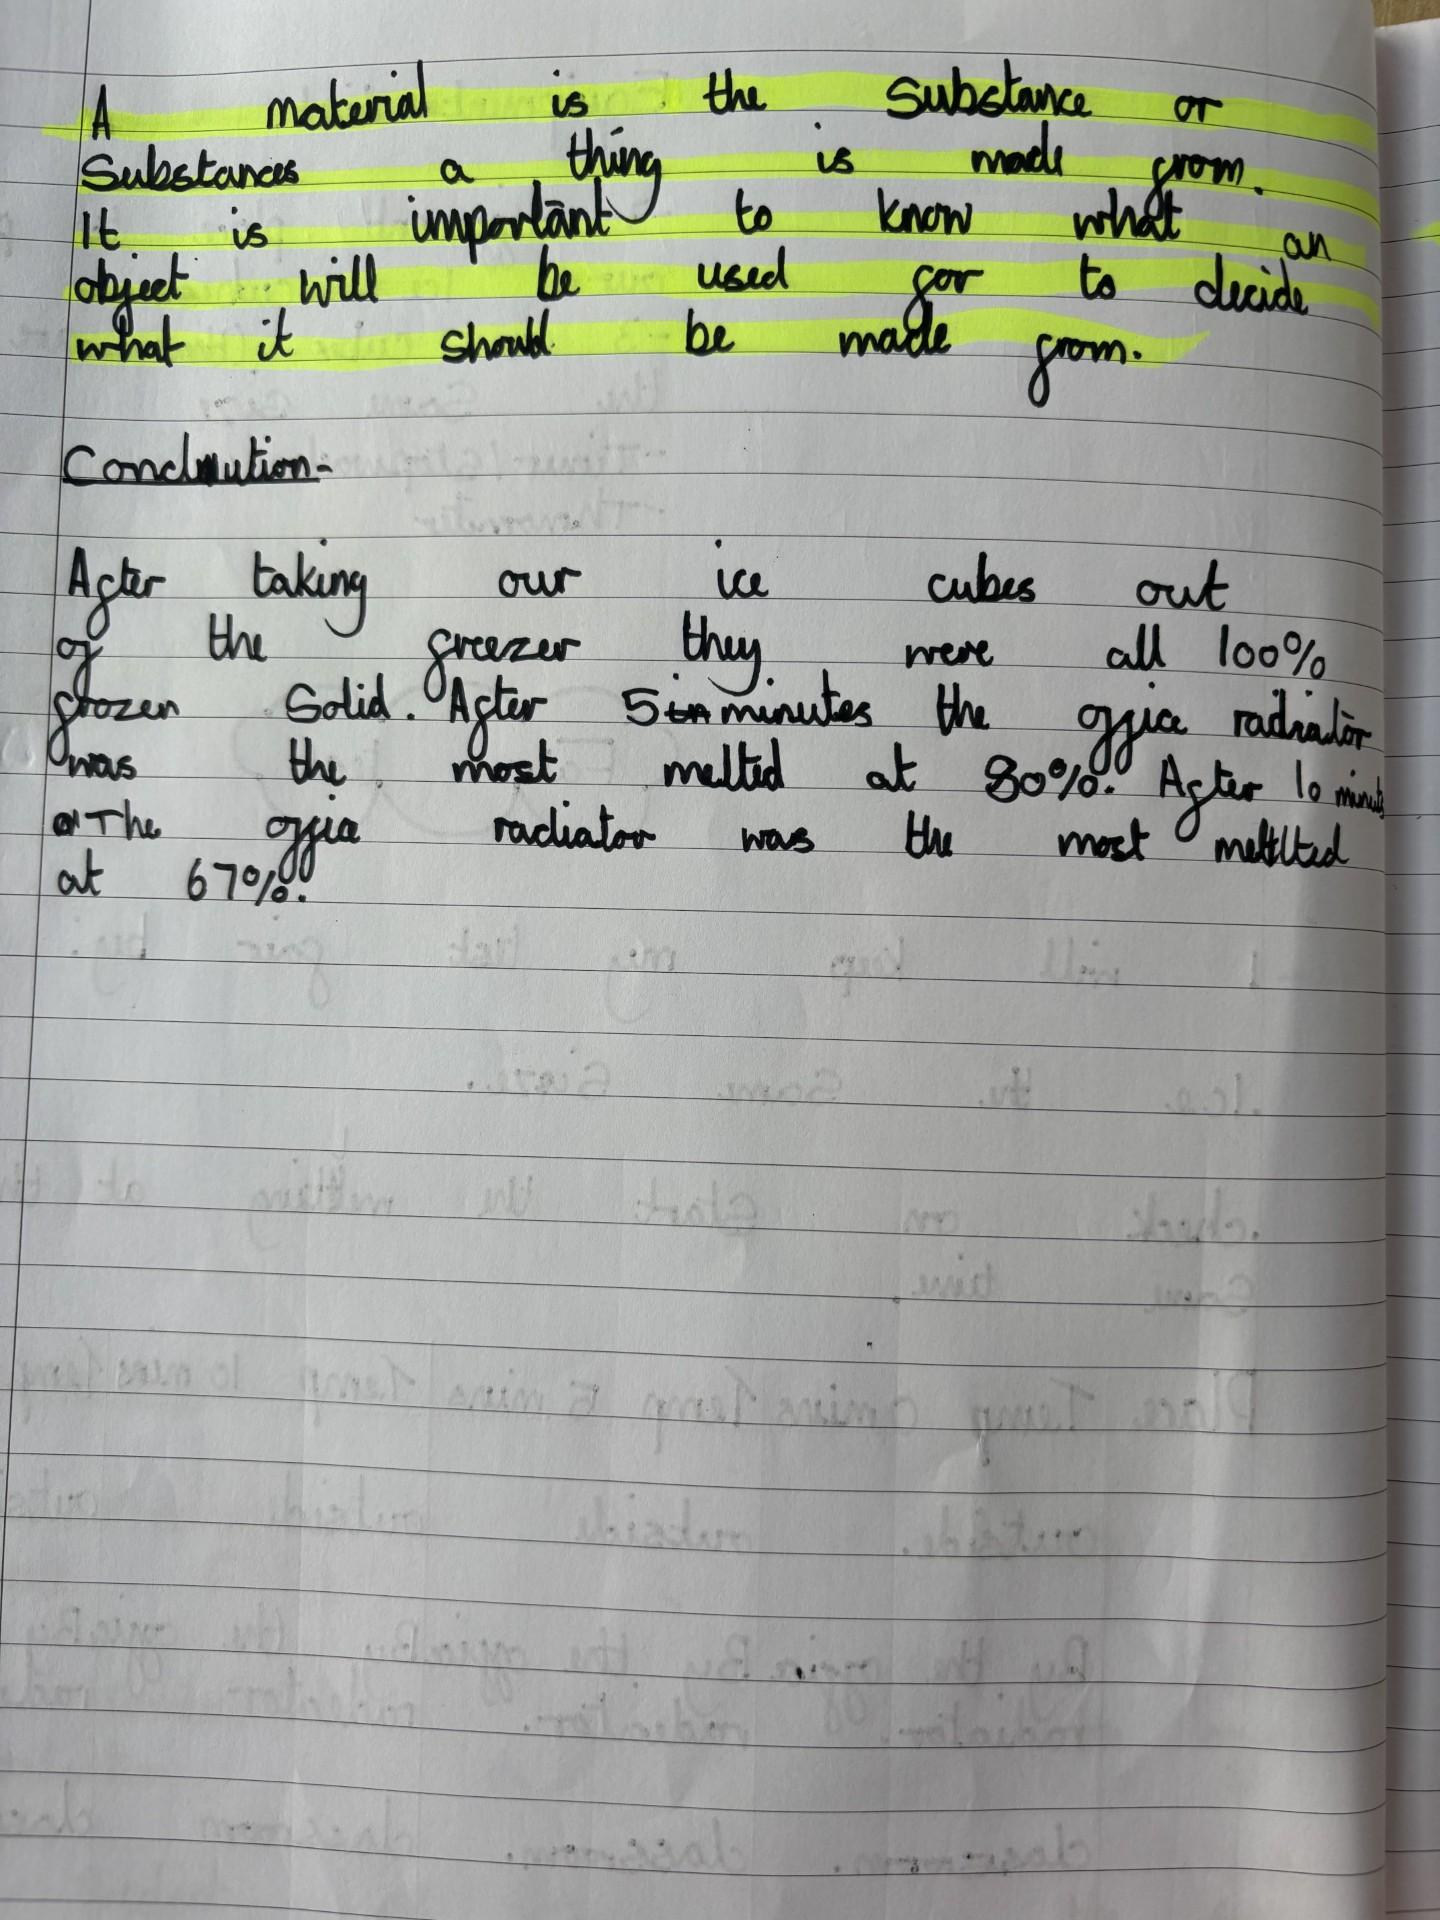 A material is the substance or
Substances a thing is made from.
It is important to know what an
object will be used for to decide
what it should be made from.
Conclution-
After taking our ice cubes out
of the freezer they were all 100%
frozen Solid. After 5 in minutes the office radiator
was the most melted at 80%. After 10 minuts
The office radiator was the most meltted
at 67%.